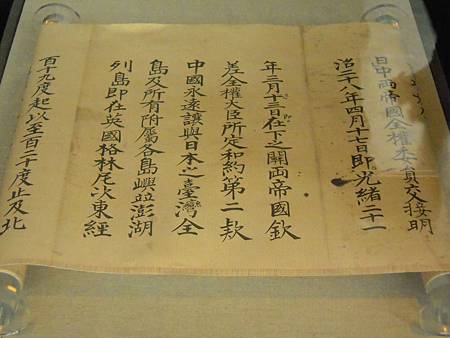 日中両帝國全權委員交接明
治二十八年四月十七日即光緒二十一
年三月廿三日在下之關両帝國欽
差全權大臣所定和約第二款
中國永遠讓與日本之臺灣全
島及所有附屬各島嶼竝澎湖
列島即在英國格林尼次東經
百十九度起以至百二十度止及北